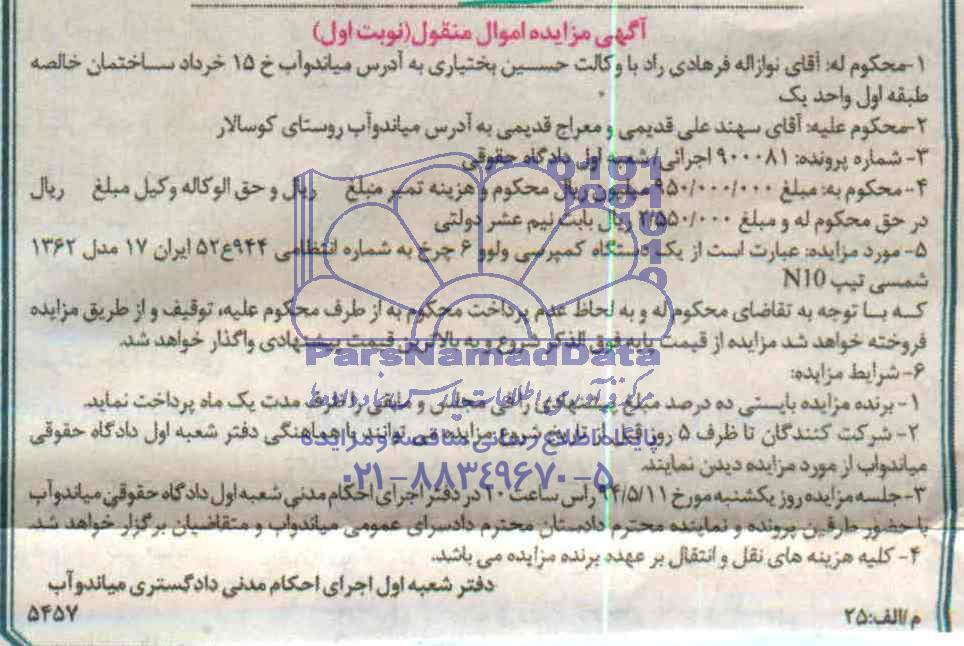 آگهی مزایده اموال منقول(نوبت اول)
۱-محکوم له: آقای نوازاله فرهادی راد با وکالت حسین بختیاری به آدرس میاندوآب خ ۱۵ خرداد ساختمان خالصه
طبقه اول واحد یک
۲-محکوم علیه: آقای سهند علی قدیمی و معراج قدیمی به آدرس میاندوآب روستای کوسالار
۳- شماره پرونده: ۹۰۰۰۸۱ اجرائی/ شعبه اول دادگاه حقوقی
۴- محکوم به: مبلغ ۹۵۰/۰۰۰/۰۰۰ میلیون ریال محکوم و هزینه تمبر مبلغ ریال و حق الوکاله وکیل مبلغ ریال
در حق محکوم له و مبلغ ۲/۵۵۰/۰۰۰ ریال بابت نیم عشر دولتی
۵- مورد مزایده: عبارت است از یک دستگاه کمپرسی ولوو ۶ چرخ به شماره انتظامی ۹۴۴ع۵۲ ایران ۱۷ مدل ۱۳۶۲
شمسی تیپ N10
که با توجه به تقاضای محکوم له و به لحاظ عدم پرداخت محکوم به از طرف محکوم علیه، توقیف و از طریق مزایده
فروخته خواهد شد مزایده از قیمت پایه فوق الذکر شروع و به بالاترین قیمت پیشنهادی واگذار خواهد شد.
ParsNamadData
۶- شرایط مزایده:
مرکز فرآوری اطلاعات پارس نماد داده ها
۱- برنده مزایده بایستی ده درصد مبلغ پیشنهادی را فی مجلس و مابقی را ظرف مدت یک ماه پرداخت نماید.
۲- شرکت کنندگان تا ظرف ۵ روز قبل از تاریخ شروع مزایده می توانند با هماهنگی دفتر شعبه اول دادگاه حقوقی
پایگاه اطلاع رسانی مناقصه و مزایده
میاندواب از مورد مزایده دیدن نمایند.
۰۲۱-۸۸۳۴۹۶۷۰-۵
۳-جلسه مزایده روز یکشنبه مورخ ۹۴/۵/۱۱ راس ساعت ۱۰ در دفتر اجرای احکام مدنی شعبه اول دادگاه حقوقی میاندوآب
با حضور طرفین پرونده و نماینده محترم دادستان محترم دادسرای عمومی میاندواب و متقاضیان برگزار خواهد شد.
۴- کلیه هزینه های نقل و انتقال بر عهده برنده مزایده می باشد.
دفتر شعبه اول اجرای احکام مدنی دادگستری میاندوآب
م/الف:۲۵
۵۴۵۷